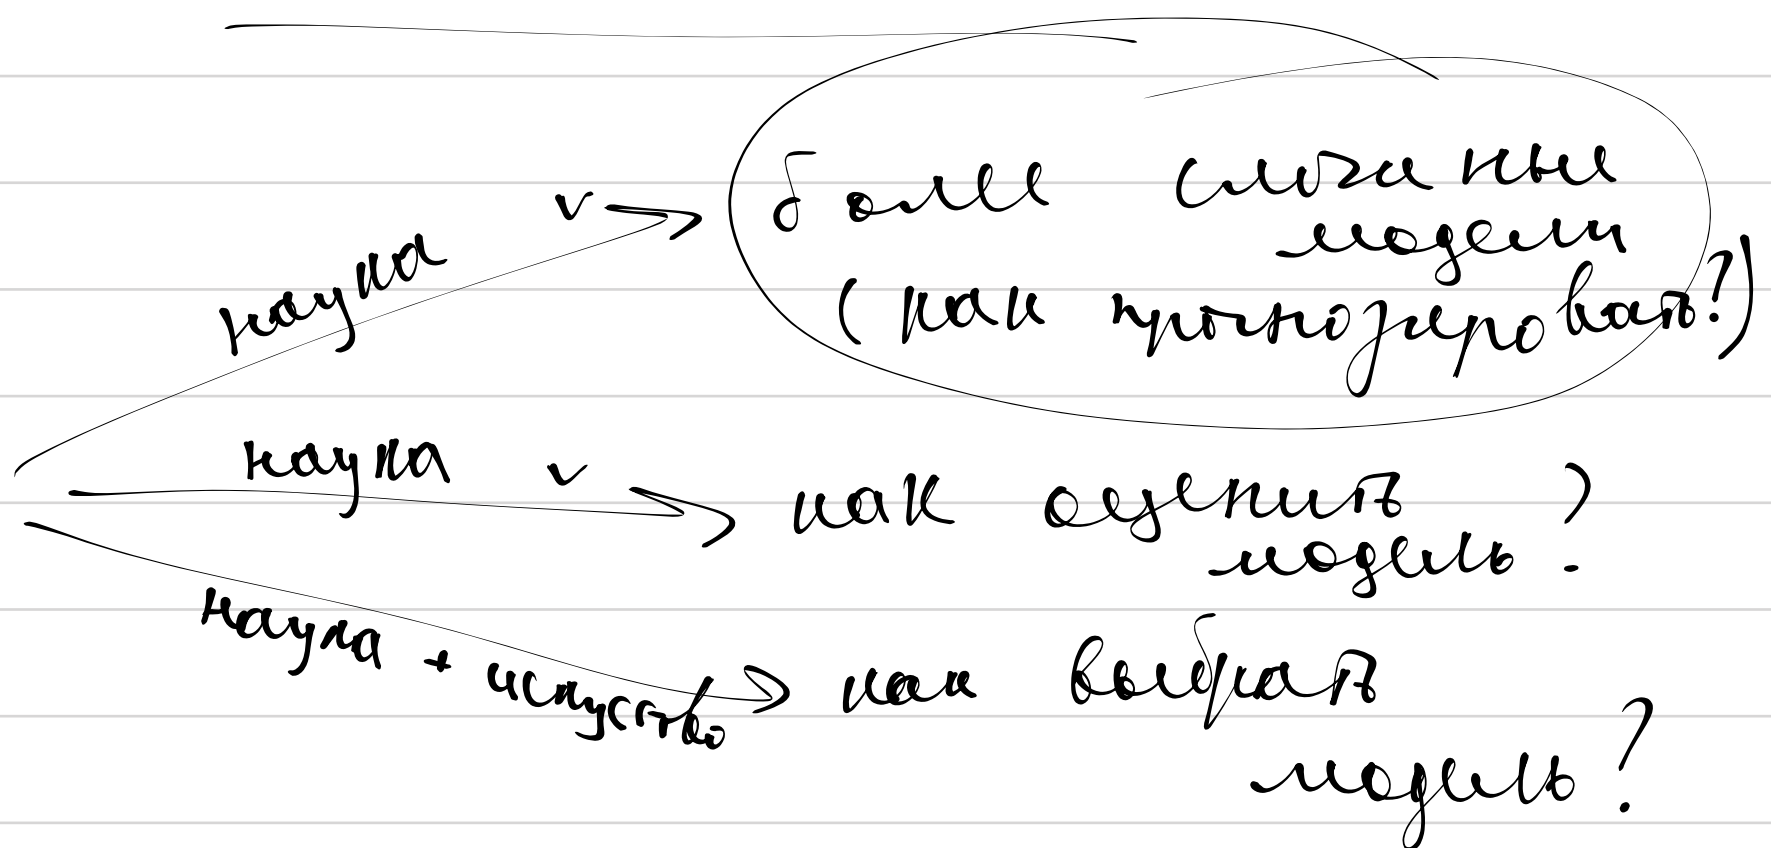 наука v более сложные
модели
(как прогнозировать?)
наука v как оценить
модель?
наука + искусство как выбрать
модель?